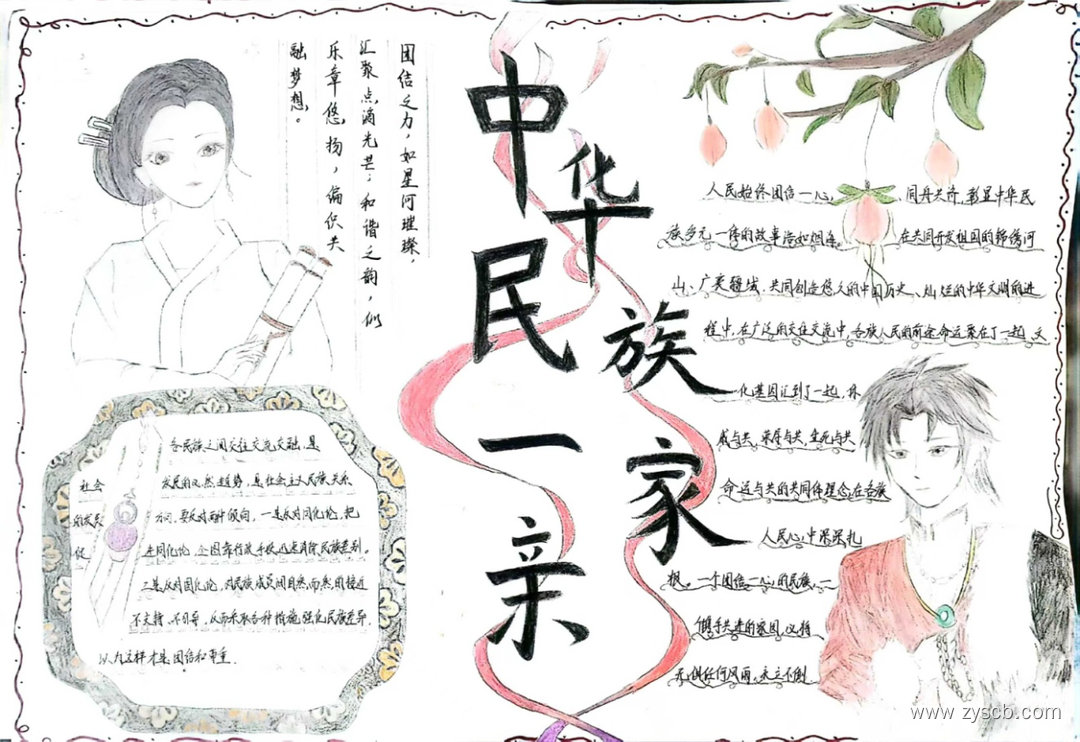 中华民族一家亲
团结之力，如星河璀璨，
汇聚点滴光芒；和谐之韵，似
乐章悠扬，偏织共
融梦想。
人民始终团结一心，同舟共济，彰显中华民
族多元一体的故事浩如烟海。在共同开发祖国的锦绣河
山、广袤疆域，共同创造悠久的中国历史、灿烂的中华文明的进
程中，在广泛的交往交流中，各族人民的前途命运聚在了一起，文
化基因汇到了一起，休
戚与共、荣辱与共、生死与共
命运与共的共同体理念，在各族
人民心中深深扎
根。一个团结一心的民族，一
个携手共进的家园，必将
无惧任何风雨，永立不倒
各民族之间交往交流交融，是
社会发展的必然趋势，是社会主义民族关系
的发展方向，要反对两种倾向，一是反对同化论，把
促进同化论，企图靠行政手段迅速消除民族差别。
二是反对固化论，对民族成员间自然而然的接近
不支持、不引导，从而采取各种措施强化民族差异，
以为这样才是团结和尊重．
www.zyscb.com